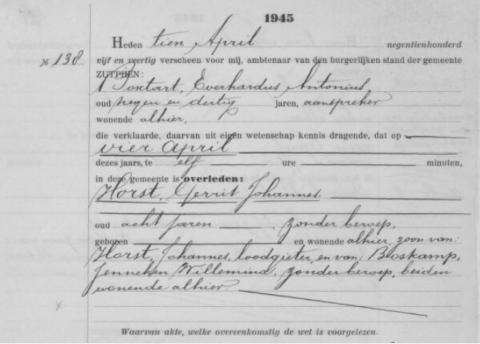 1945
Heden tien April negentienhonderd
№ 138. vijf en veertig verscheen voor mij, ambtenaar van den burgerlijken stand der gemeente
ZUTPHEN:
Pontart, Everhardus Antonius
oud negen en dertig jaren, aanspreker
wonende alhier,
die verklaarde, daarvan uit eigen wetenschap kennis dragende, dat op
vier April
dezes jaars, te elf ure minuten,
in deze gemeente is overleden:
Horst, Gerrit Johannes
oud acht jaren zonder beroep,
geboren en wonende alhier, zoon van:
Horst, Johannes, loodgieter, en van: Boskamp,
Jenneken Willemina, zonder beroep, beiden
wonende alhier
Waarvan akte, welke overeenkomstig de wet is voorgelezen.